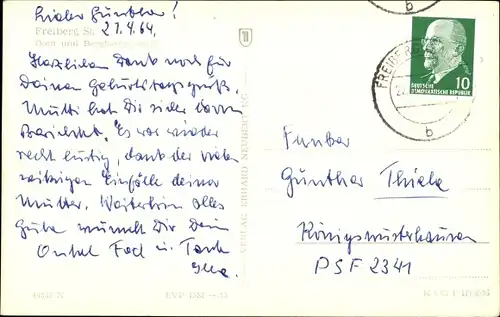 Lieber Günther!
21.4.64.
Freiberg
Dom und
Herzlichen Dank noch für
Deinen Geburtstagsgruß.
Mutti hat Dir sicher davon
berichtet. Es war wieder
recht lustig, dank der vielen
witzigen Einfälle deiner
Mutter. Weiterhin alles
Gute wünscht Dir Dein
Onkel u. Tante
VERLAG ERHARD NEUBERT
FREIBERG
b
10
DEUTSCHE
DEMOKRATISCHE REPUBLIK
b
Funker
Günther Thiele
Königswusterhausen
PSF 2341
EVP DM